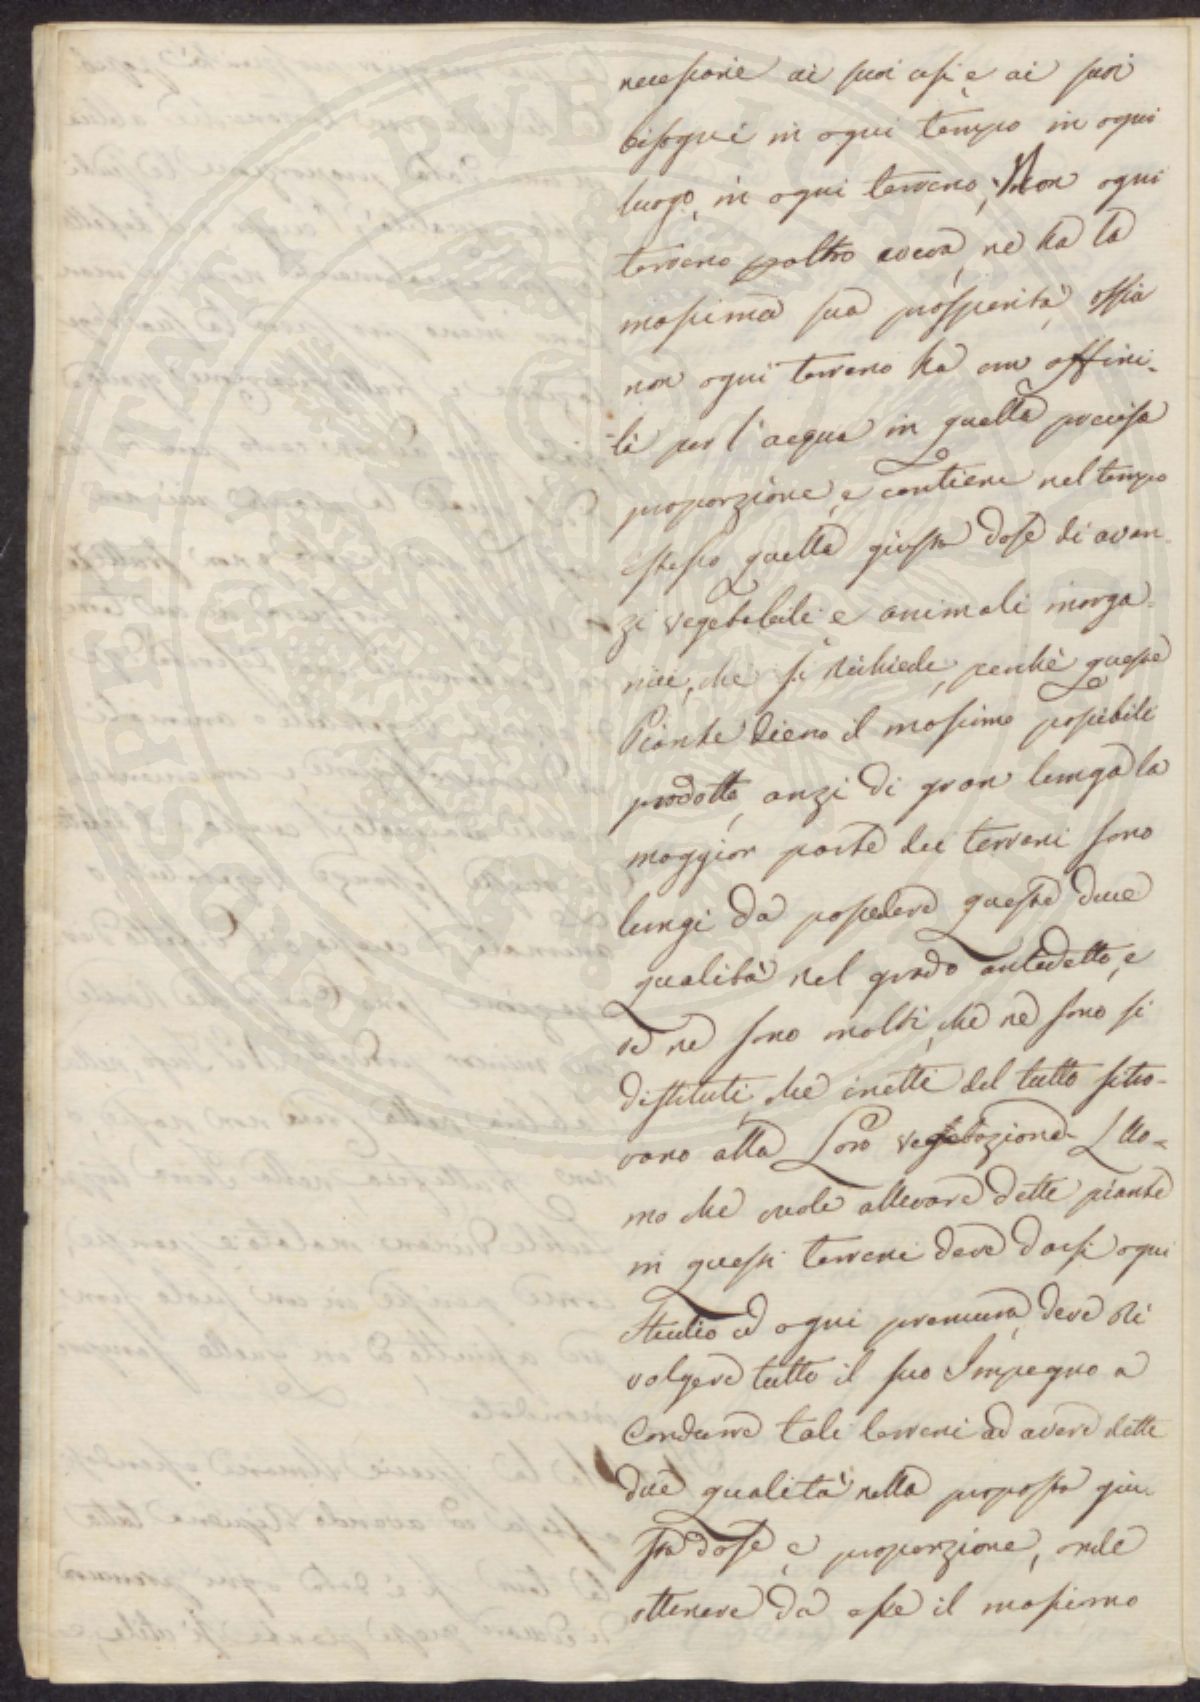 necessarie ai suoi usi e ai suoi
bisogni in ogni tempo in ogni
luogo, in ogni terreno; Non ogni
terreno poltro ne ha la
massima sua prosperità, ossia
non ogni terreno ha una affini-
tà per l'acqua in quella precisa
proporzione, e contiene nel tempo
istesso quella giusta dose di avan-
zi vegetabili e animali inorga-
nici, che si richiede, perchè queste
Piante dieno il massimo possibile
prodotto, anzi di gran lunga la
maggior parte dei terreni sono
lungi da possedere queste due
qualità nel grado antedetto, e
ve ne sono molti, che ne sono si
distituti, che inetti del tutto si tro-
vano alla Loro vegetazione. L'Uo-
mo che vuole allevare dette piante
in questi terreni deve darsi ogni
studio ed ogni premura, deve ri
volgere tutto il suo Impegno a
Condurre tali terreni ad avere dette
due qualità nella proposta giu-
sta dose e proporzione, onde
ottenere da esse il massimo